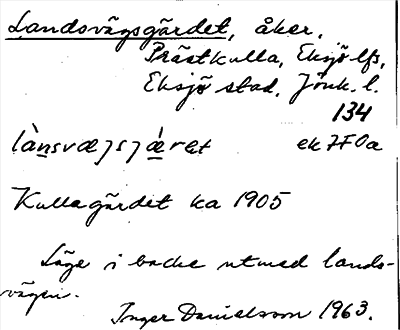 Landsvägsgärdet, åker,
Prästkulla, Eksjö lfs,
Eksjö stad, Jönk. l.
134
ek 7F0a
Kullagärdet ka 1905
Läge i backe utmed lands-
vägen.
Inger Danielsson 1963.